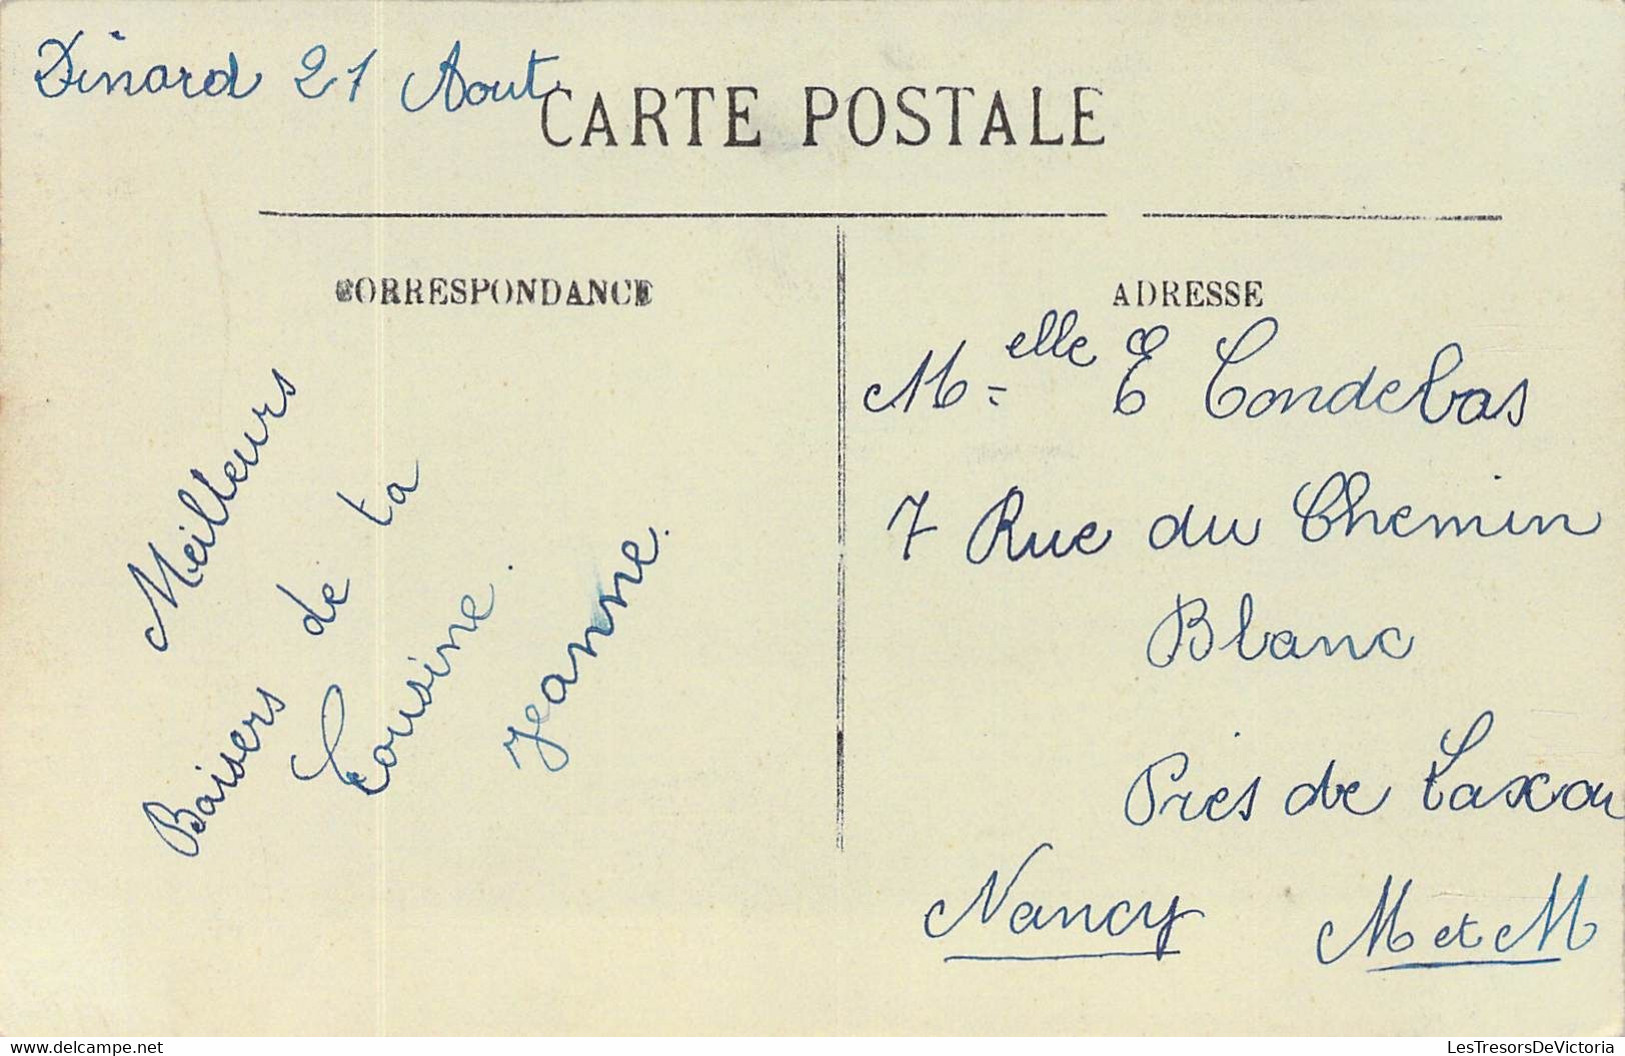 Dinard 21 Aout
CARTE POSTALE
CORRESPONDANCE
Meilleurs
Baisers de ta
Cousine.
Jeanne.
ADRESSE
Melle E Condebas
7 Rue du Chemin
Blanc
Près de Laxou
Nancy M et M
LesTresorsDeVictoria